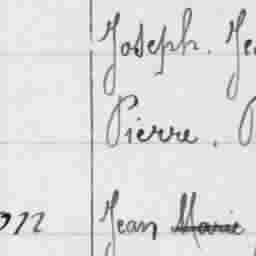 Joseph. Je
Pierre. P
Jean Marie